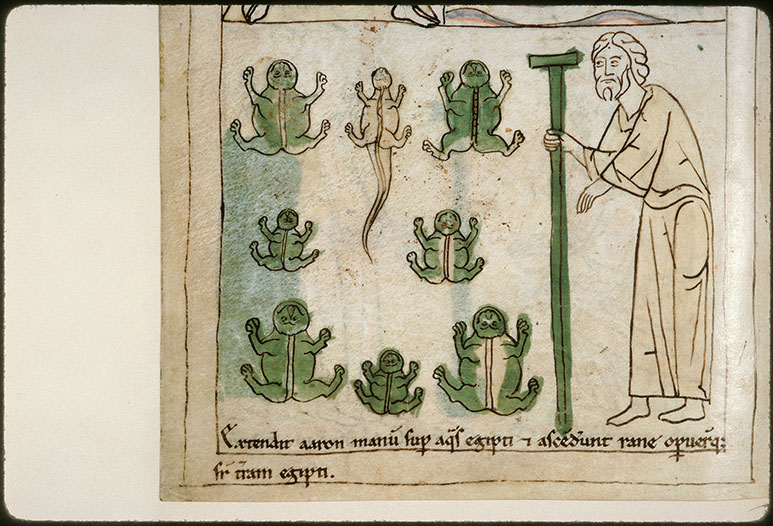 Extendit aaron manū sup aq̄s egipti ⁊ ascedūnt rane opuerūq;
sr̄ t̄ram egipti.